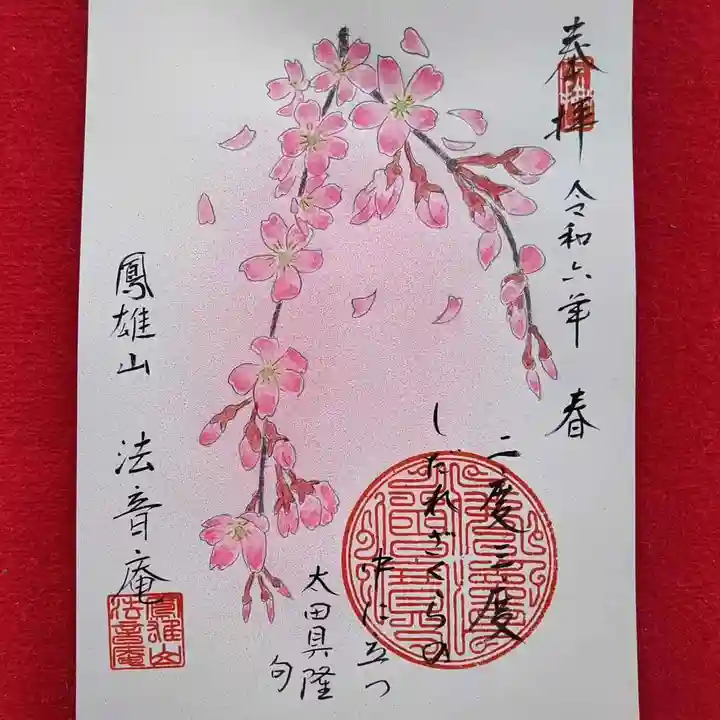 奉拝 令和六年 春
二度三度
しだれざくらの
中に立つ
太田具隆
句
鳳雄山 法音庵
鳳雄山
法音庵